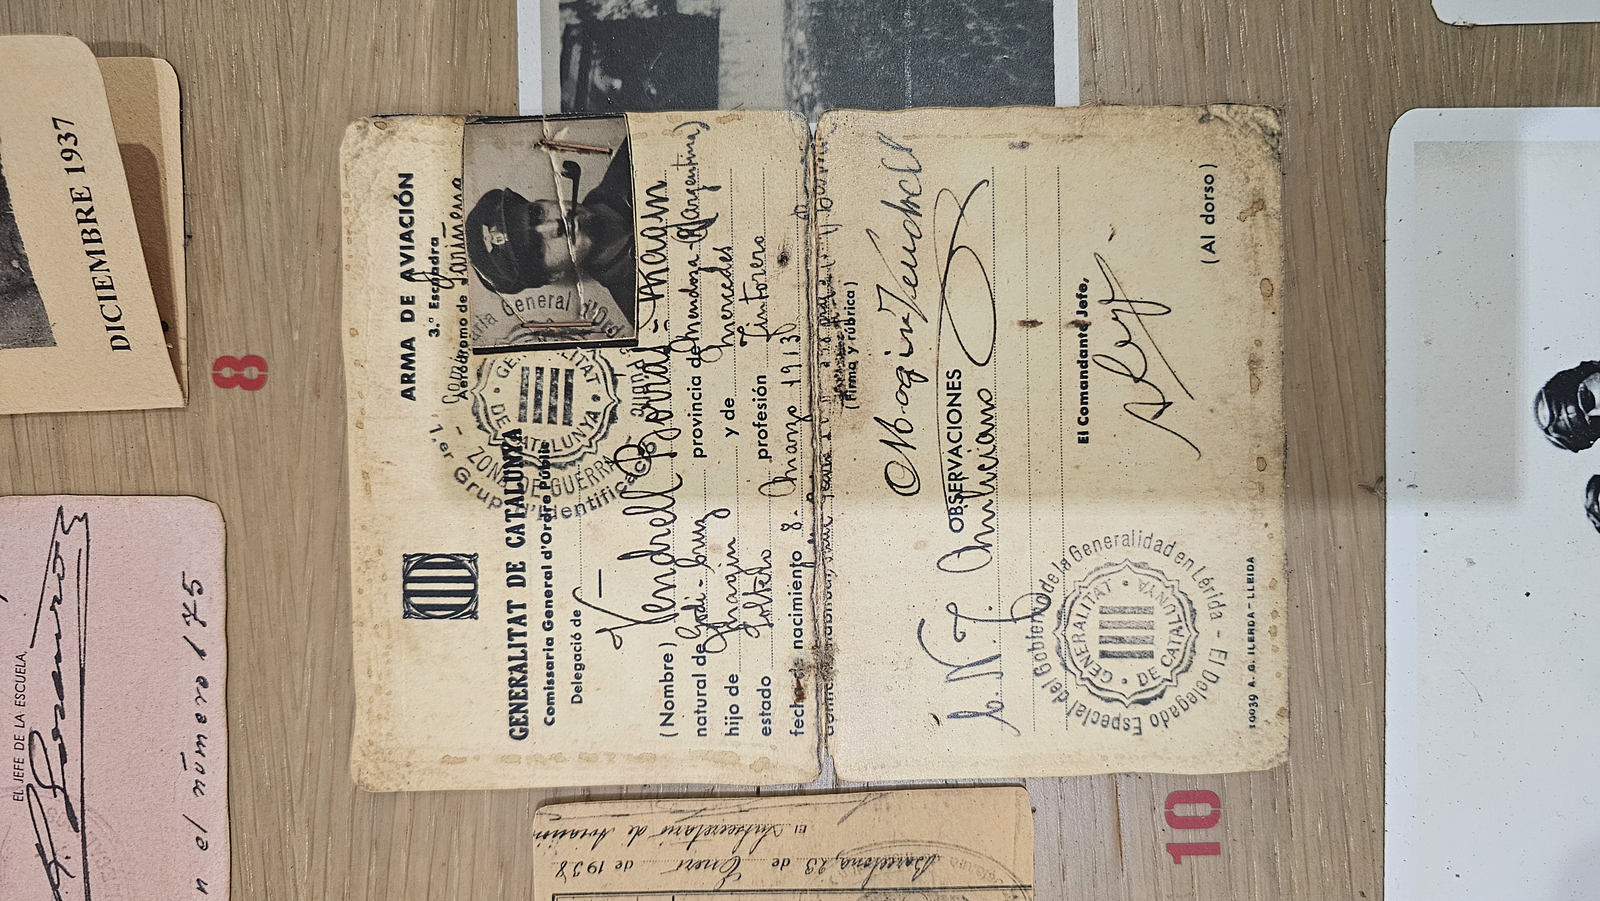 DICIEMBRE 1937
8
EL JEFE DE LA ESCUELA,
n el número 175
ARMA DE AVIACIÓN
3.ª Escuadra
Aeródromo de Sariñena
GENERALITAT DE CATALUNYA
Comissaria General d'Ordre Públic
Delegació de
1.er Grup d'Identificació
ZONA DE GUERRA
GENERALITAT DE CATALUNYA
General d'O
Vendrell Bordás Magín
(Nombre)
natural de Godi-Cruz provincia de Mendoza (Argentina)
hijo de Magín y de Mercedes
estado Soltero profesión Tintorero
fecha de nacimiento 8. Marzo 1913
(firma y rúbrica)
Magin Vendrell
OBSERVACIONES
Miliciano
El Comandante Jefe,
El Delegado Especial del Gobierno de la Generalidad en Lérida
GENERALITAT DE CATALUNYA
(Al dorso)
10039 A. G. ILERDA-LLEIDA
El Subsecretario de Aviación
Barcelona, 23 de Enero de 1938
10